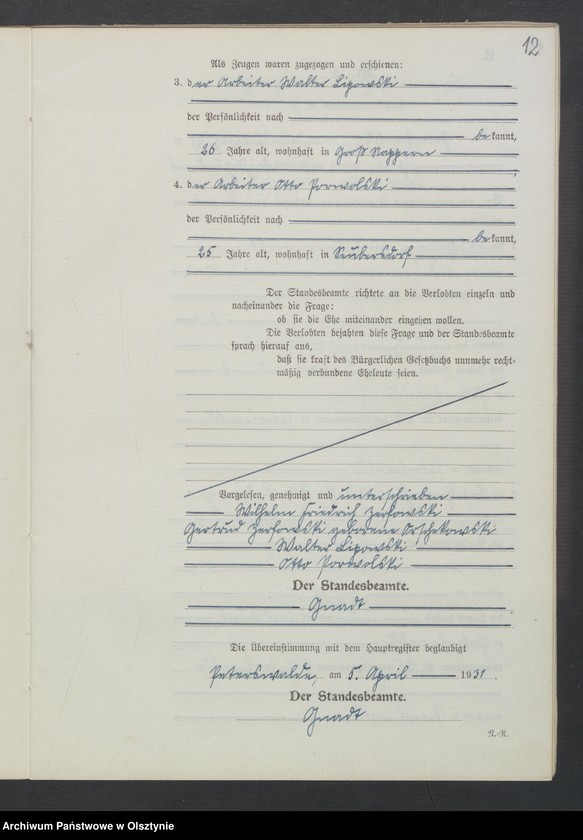 12
Als Zeugen waren zugezogen und erschienen:
3. der Arbeiter Walter Lipowski
der Persönlichkeit nach
bekannt,
26 Jahre alt, wohnhaft in Groß Nappern
4. der Arbeiter Otto Porwolski
der Persönlichkeit nach
bekannt,
25 Jahre alt, wohnhaft in Seubersdorf
Der Standesbeamte richtete an die Verlobten einzeln und
nacheinander die Frage:
ob sie die Ehe miteinander eingehen wollen.
Die Verlobten bejahten diese Frage und der Standesbeamte
sprach hierauf aus,
daß sie kraft des Bürgerlichen Gesetzbuchs nunmehr recht-
mäßig verbundene Eheleute seien.
Vorgelesen, genehmigt und unterschrieben
Wilhelm Friedrich
Gertrud geborene
Walter Lipowski
Otto Porwolski
Der Standesbeamte.
Gnadt
Die Übereinstimmung mit dem Hauptregister beglaubigt
Peterswalde, am 5. April 1931.
Der Standesbeamte.
Gnadt
N.-R.
Archiwum Państwowe w Olsztynie